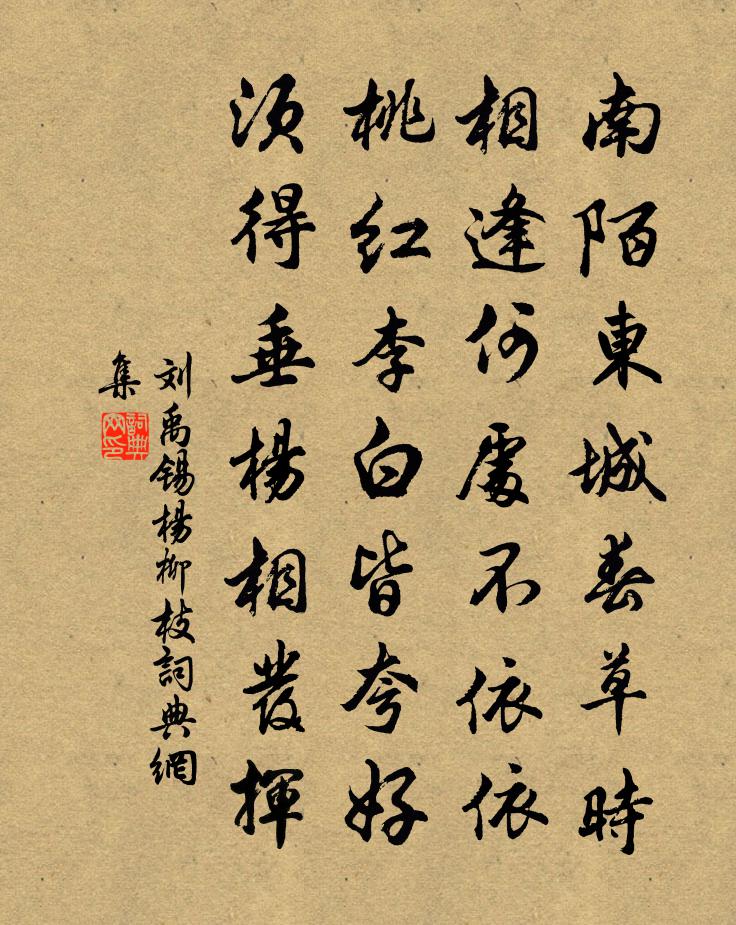 南陌東城春草時
相逢何處不依依
桃紅李白皆夸好
須得垂楊相發揮
刘禹锡楊柳枝詞典網
集
詞典網印